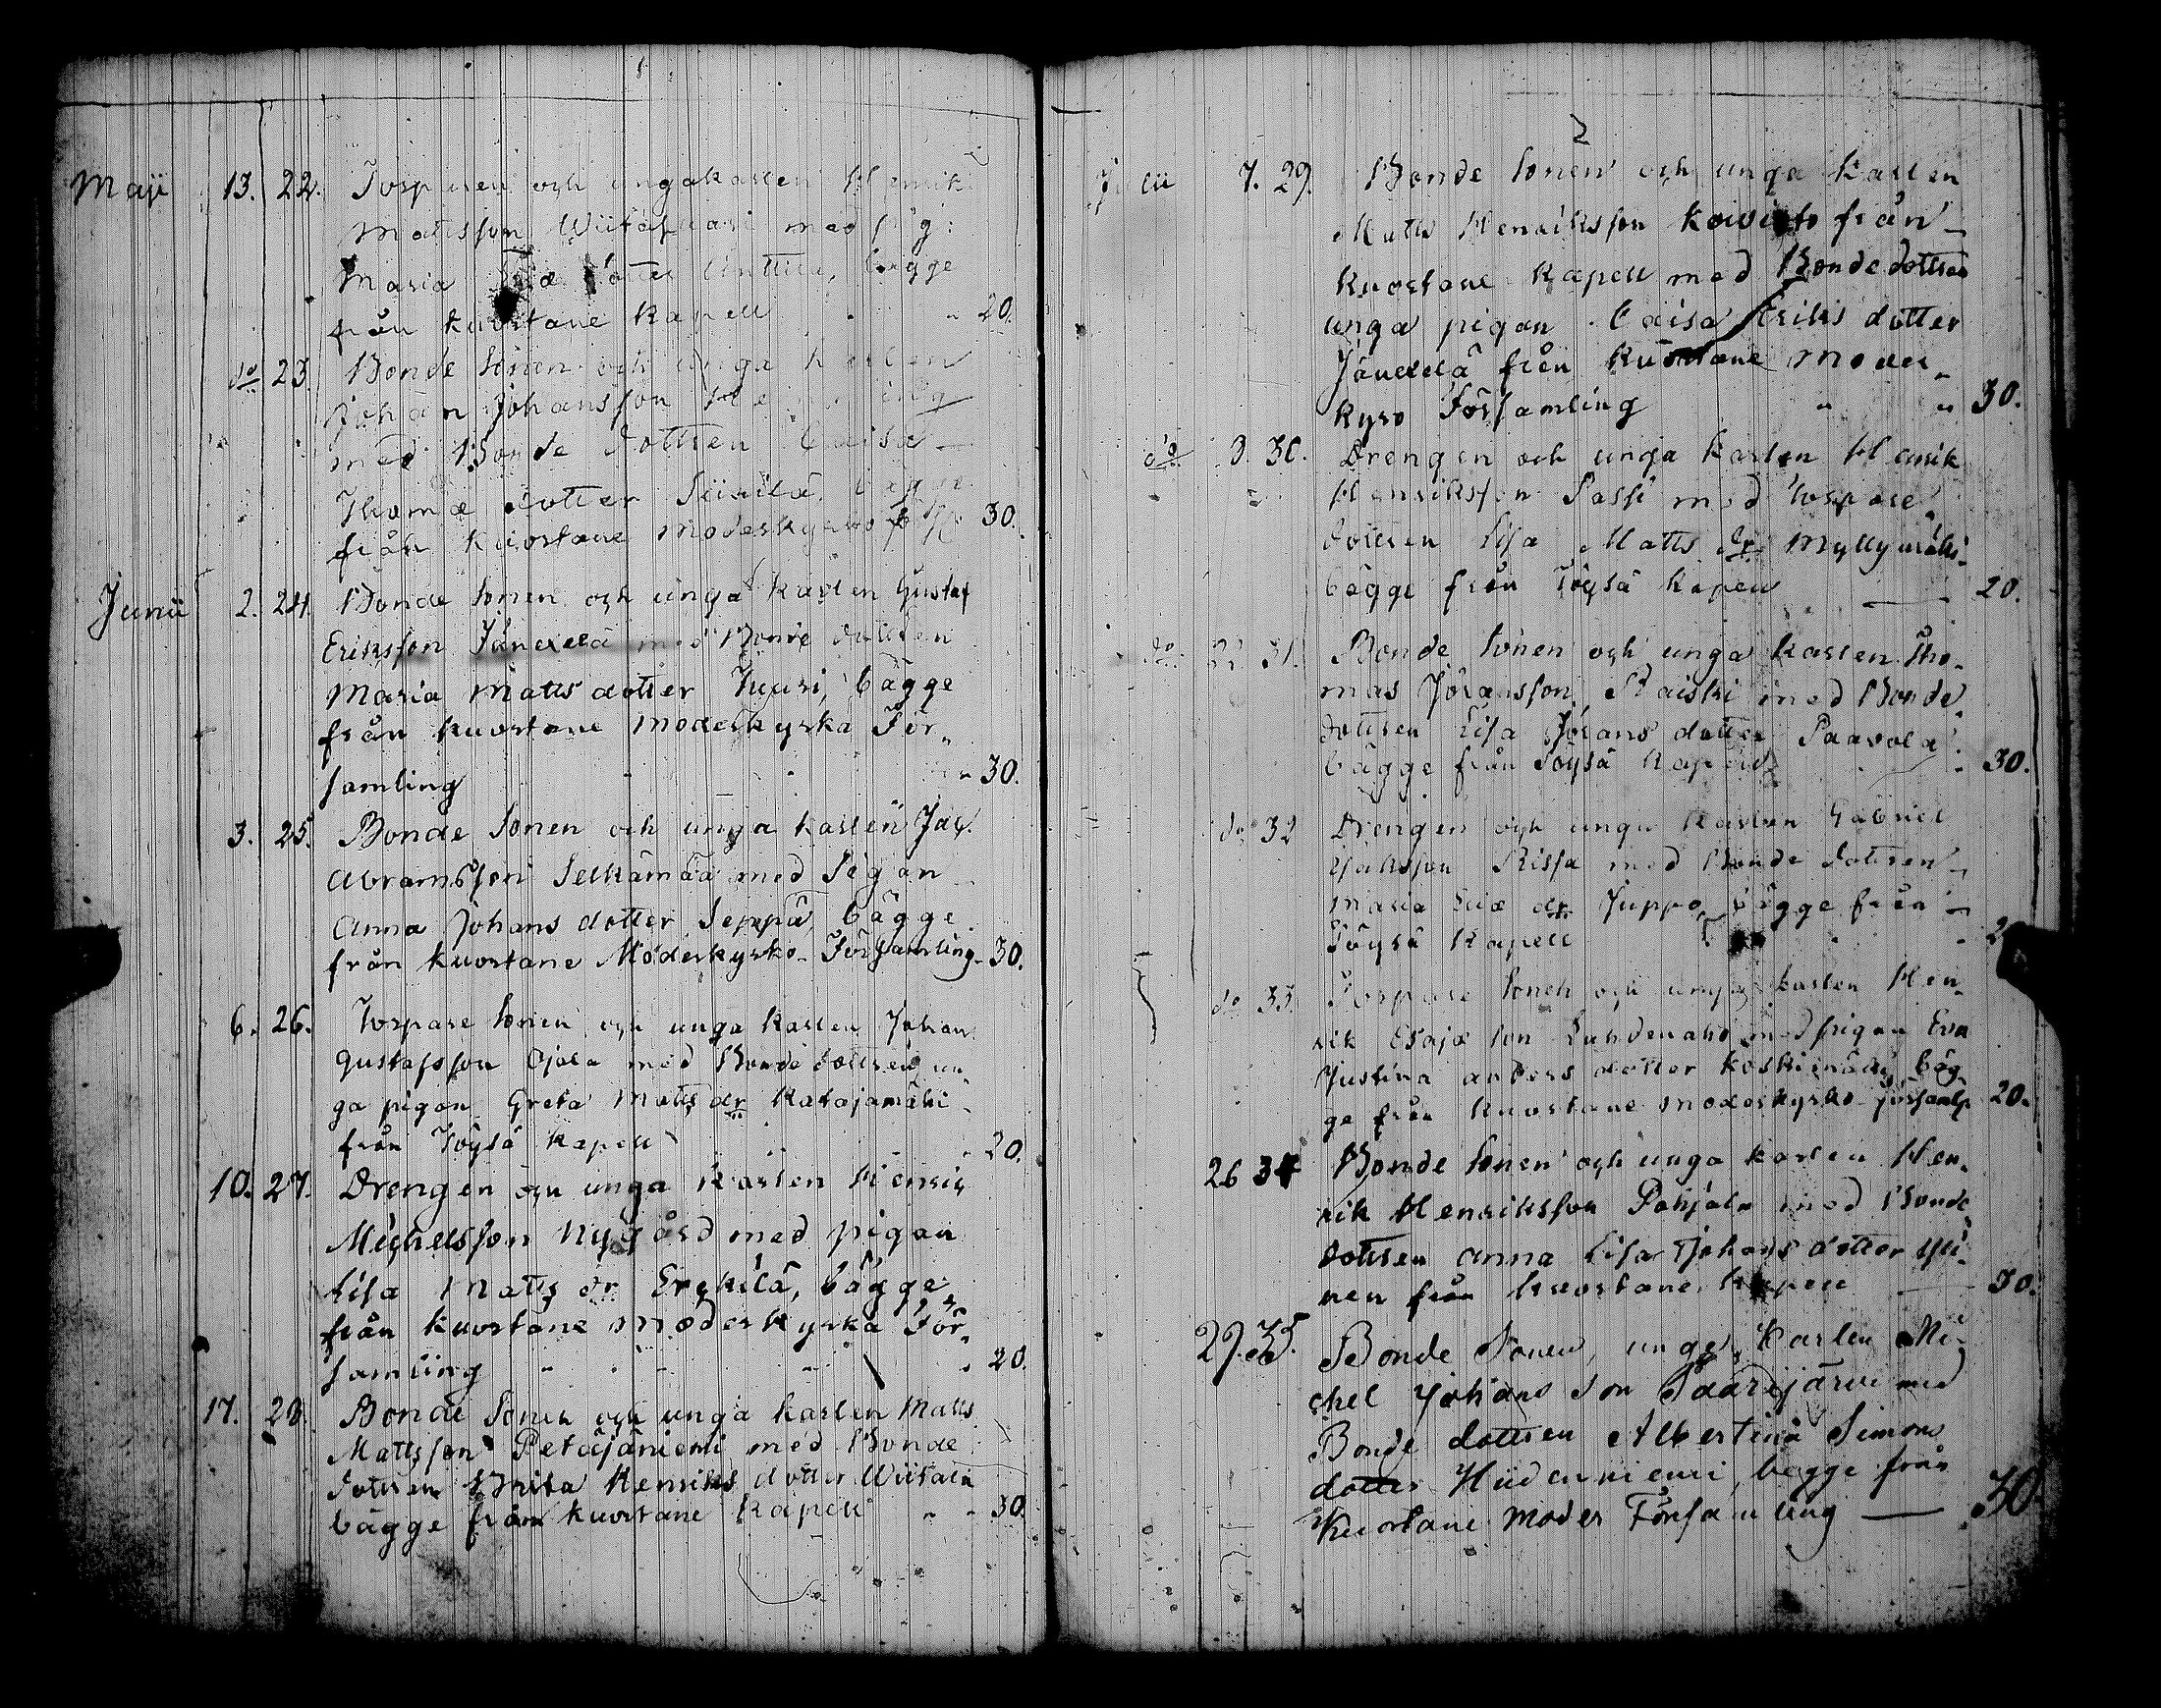 Maji 13. 22. Torparen och unga karlen Henrik
Mattsson Wiitasaari med pig:
Maria dotter Anttila, bägge
från Kuortane Kapell 20.
do 23. Bonde Sonen och unga karlen
Johan Johansson
med Bonde dottren Caisa
Thomæ dotter Siirilä, bägge
från Kuortane moderkyrko 30.
Junii 2. 24. Bonde Sonen och unga karlen Gustaf
Eriksson Jänellä med Bonde dottren
Maria Matts dotter Tuuri, bägge
från Kuortane moderkyrka För-
samling 30.
3. 25. Bonde Sonen och unga karlen Jac.
Abramsson Selkämää med Pigan
Anna Johans dotter Seppä, bägge
från Kuortane Moderkyrko Församling 30.
6. 26. Torpare Sonen och unga karlen Johan
Gustafsson Ojala med Bonde dottren un-
ga pigan Greta Matts dr Katajamäki
från Töysä Kapell 20.
10. 27. Drengen och unga Karlen Henric
Michelsson Nygård med pigan
Lisa Matts dr Erkkilä, bägge
från Kuortane Moderkyrka För-
samling 20.
17. 28. Bonde Sonen och unga karlen Matts
Mattsson Petäjäniemi med Bonde
dottren Brita Henriks dotter Wiitala
bägge från Kuortane Kapell 30.
2
Julii 7. 29. Bonde Sonen och unga karlen
Matts Henriksson Koivisto från
Kuortane Kapell med Bonde dottren
unga pigan Caisa Eriks dotter
Jänellä från Kuortane Moder-
kyro Församling 30.
do 30. Drengen och unga Karlen Henrik
Henriksson Passi med Torpare
dottren Lisa Matts dr Myllymäki
bägge från Töysä Kapell 20.
do 22 31. Bonde Sonen och unga karlen Tho-
mas Jöransson Raiski med Bonde
dottren Lisa Jörans dotter Paavola
bägge från Töysä Kapell 30.
do 32 Drengen och unga Karlen Gabriel
Jaksson Rissa med Bonde dottren
Maria dr Juppo, bägge från
Töysä Kapell
do 33. Torpare Sonen och unga karlen Hen-
rik Esajæ son Luhdenaho med pigan Eva
Justina Anders dotter Koskienmäki, bäg-
ge från Kuortane moderkyrko församlg 20.
26 34 Bonde Sonen och unga karlen Hen-
rik Henriksson Pohjola med Bonde
dottren Anna Lisa Johans dotter Yli-
nen från Kuortane Kapell 30.
29. 35. Bonde Sonen, unga Karlen Mi-
chel Johans Son Saarijärvi med
Bonde dottren Albertina Simons
dotter Hiidenniemi, begge från
Kuortane Moder Församling 30.